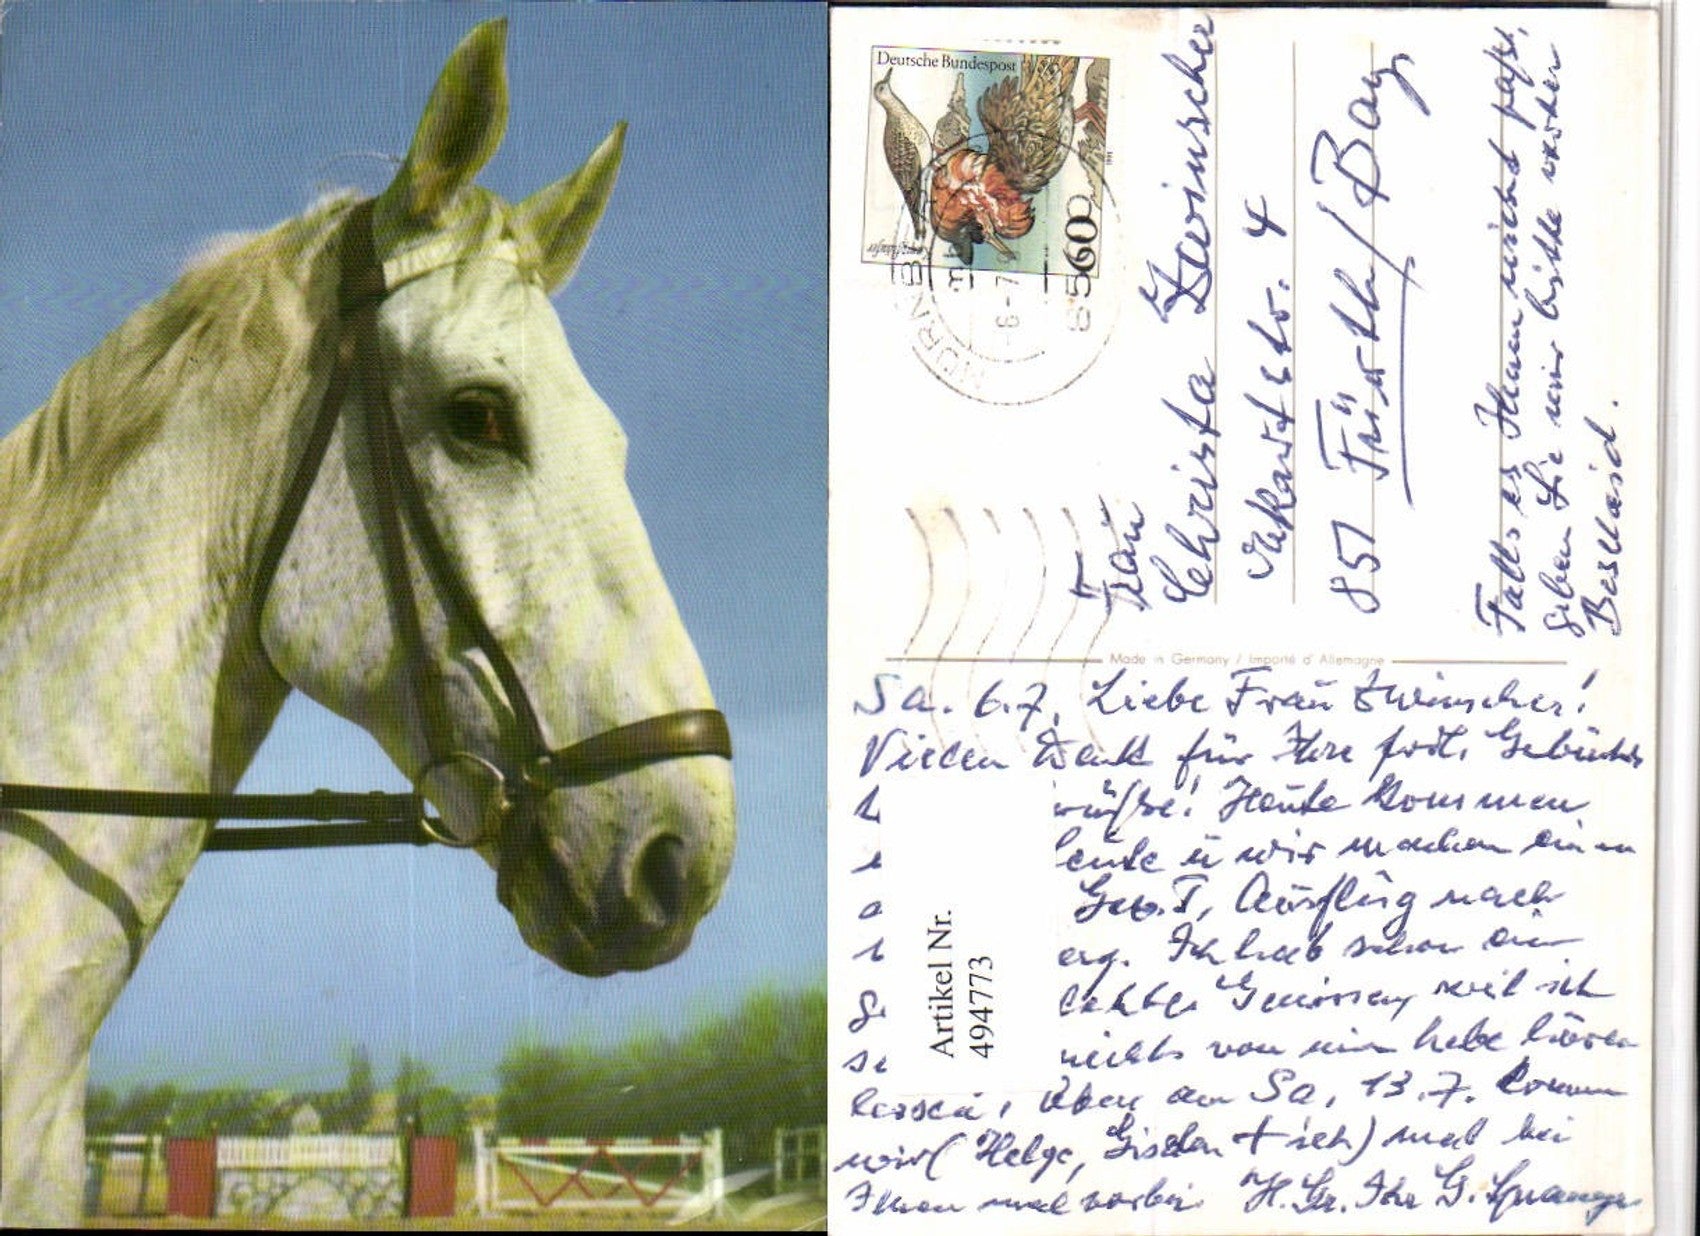 Deutsche Bundespost
60
NÜRNB
6-7
850
Frau
Christa Zwinscher
Makartstr. 4
851 Fürth/Bay
Falls es Ihnen nicht paßt,
geben Sie mir bitte vorher
Bescheid.
Made in Germany / Importé d'Allemagne
Sa. 6.7. Liebe Frau Zwinscher!
Vielen Dank für Ihre frdl. Geburts
wüßse! Heute kommen
leute u wir machen einen
Geb.T. Ausflug nach
erg. Ich hab schon ein
Gewissen, weil ich
nichts von mir habe hören
lassen. Aber am Sa. 13.7. kommen
wir (Helge, + ich) mal bei
Ihnen mal vorbei. H. Gr. Ihr G.
Artikel Nr.
494773